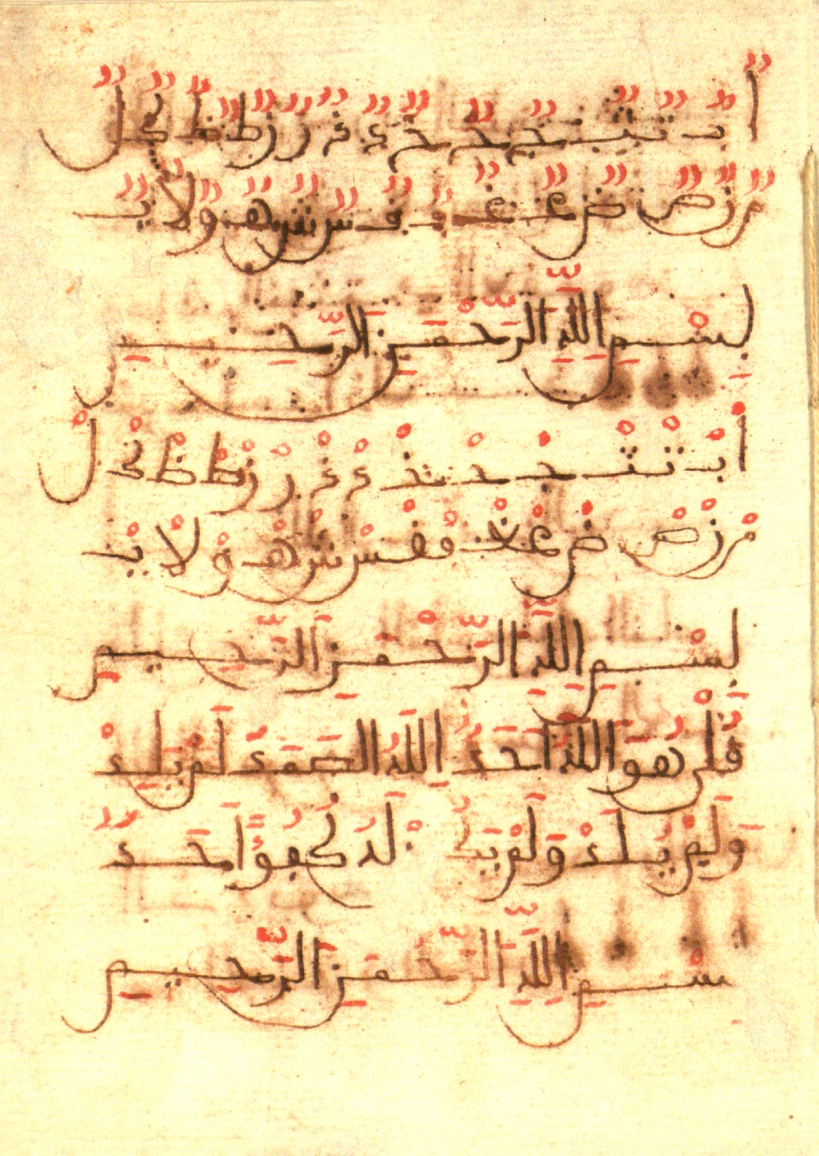 ا ب ت ث ج ح خ د ذ ر ز ط ظ ك ل
م ن ص ض ع غ ف ق س ش ه و لا ي
بسم الله الرحمن الرحيم
ا ب ت ث ج ح خ د ذ ر ز ط ظ ك ل
م ن ص ض ع غ ف ق س ش ه و لا ي
بسم الله الرحمن الرحيم
قل هو الله احد الله الصمد لم يلد
ولم يولد ولم يكن له كفؤا احد
بسم الله الرحمن الرحيم